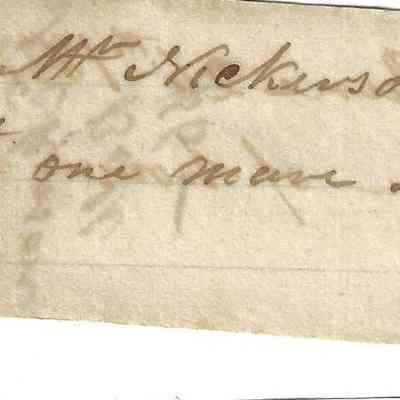 Mr Nickerso
t one mare